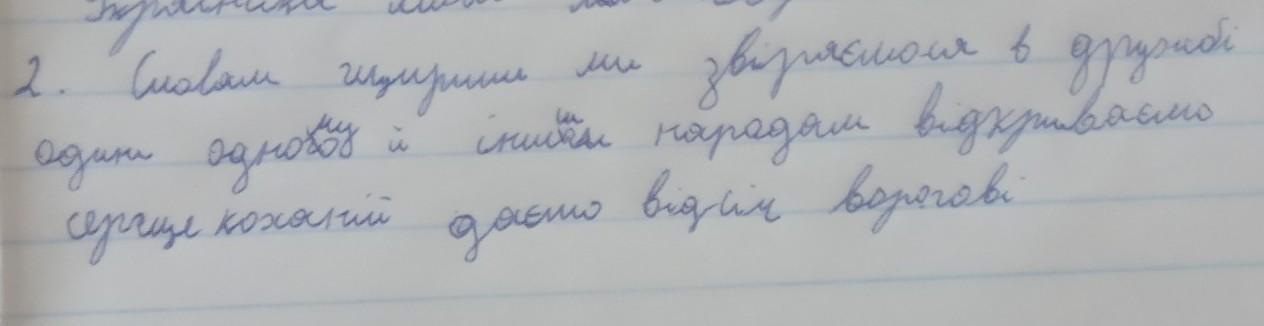 Українська мова
2. Словам щирими ми звіряємося в дружбі
один одному й іншим народам відкриваємо
серце коханій даємо відсіч ворогові